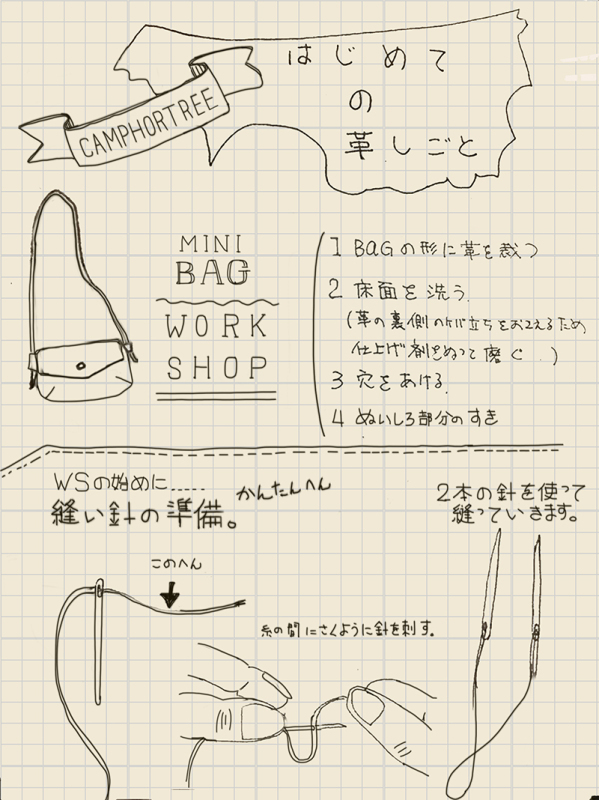 CAMPHORTREE
はじめて
の
革しごと
MINI
BAG
WORK
SHOP
1 BAGの形に革を裁つ
2 床面を洗う
(革の裏側のケバ立ちをおさえるため
仕上げ剤をぬって磨ぐ.)
3 穴をあける.
4 ぬいしろ部分のすき
WSの始めに.....
縫い針の準備。かんたんへん
2本の針を使って
縫っていきます。
このへん
糸の間にさくように針を刺す。